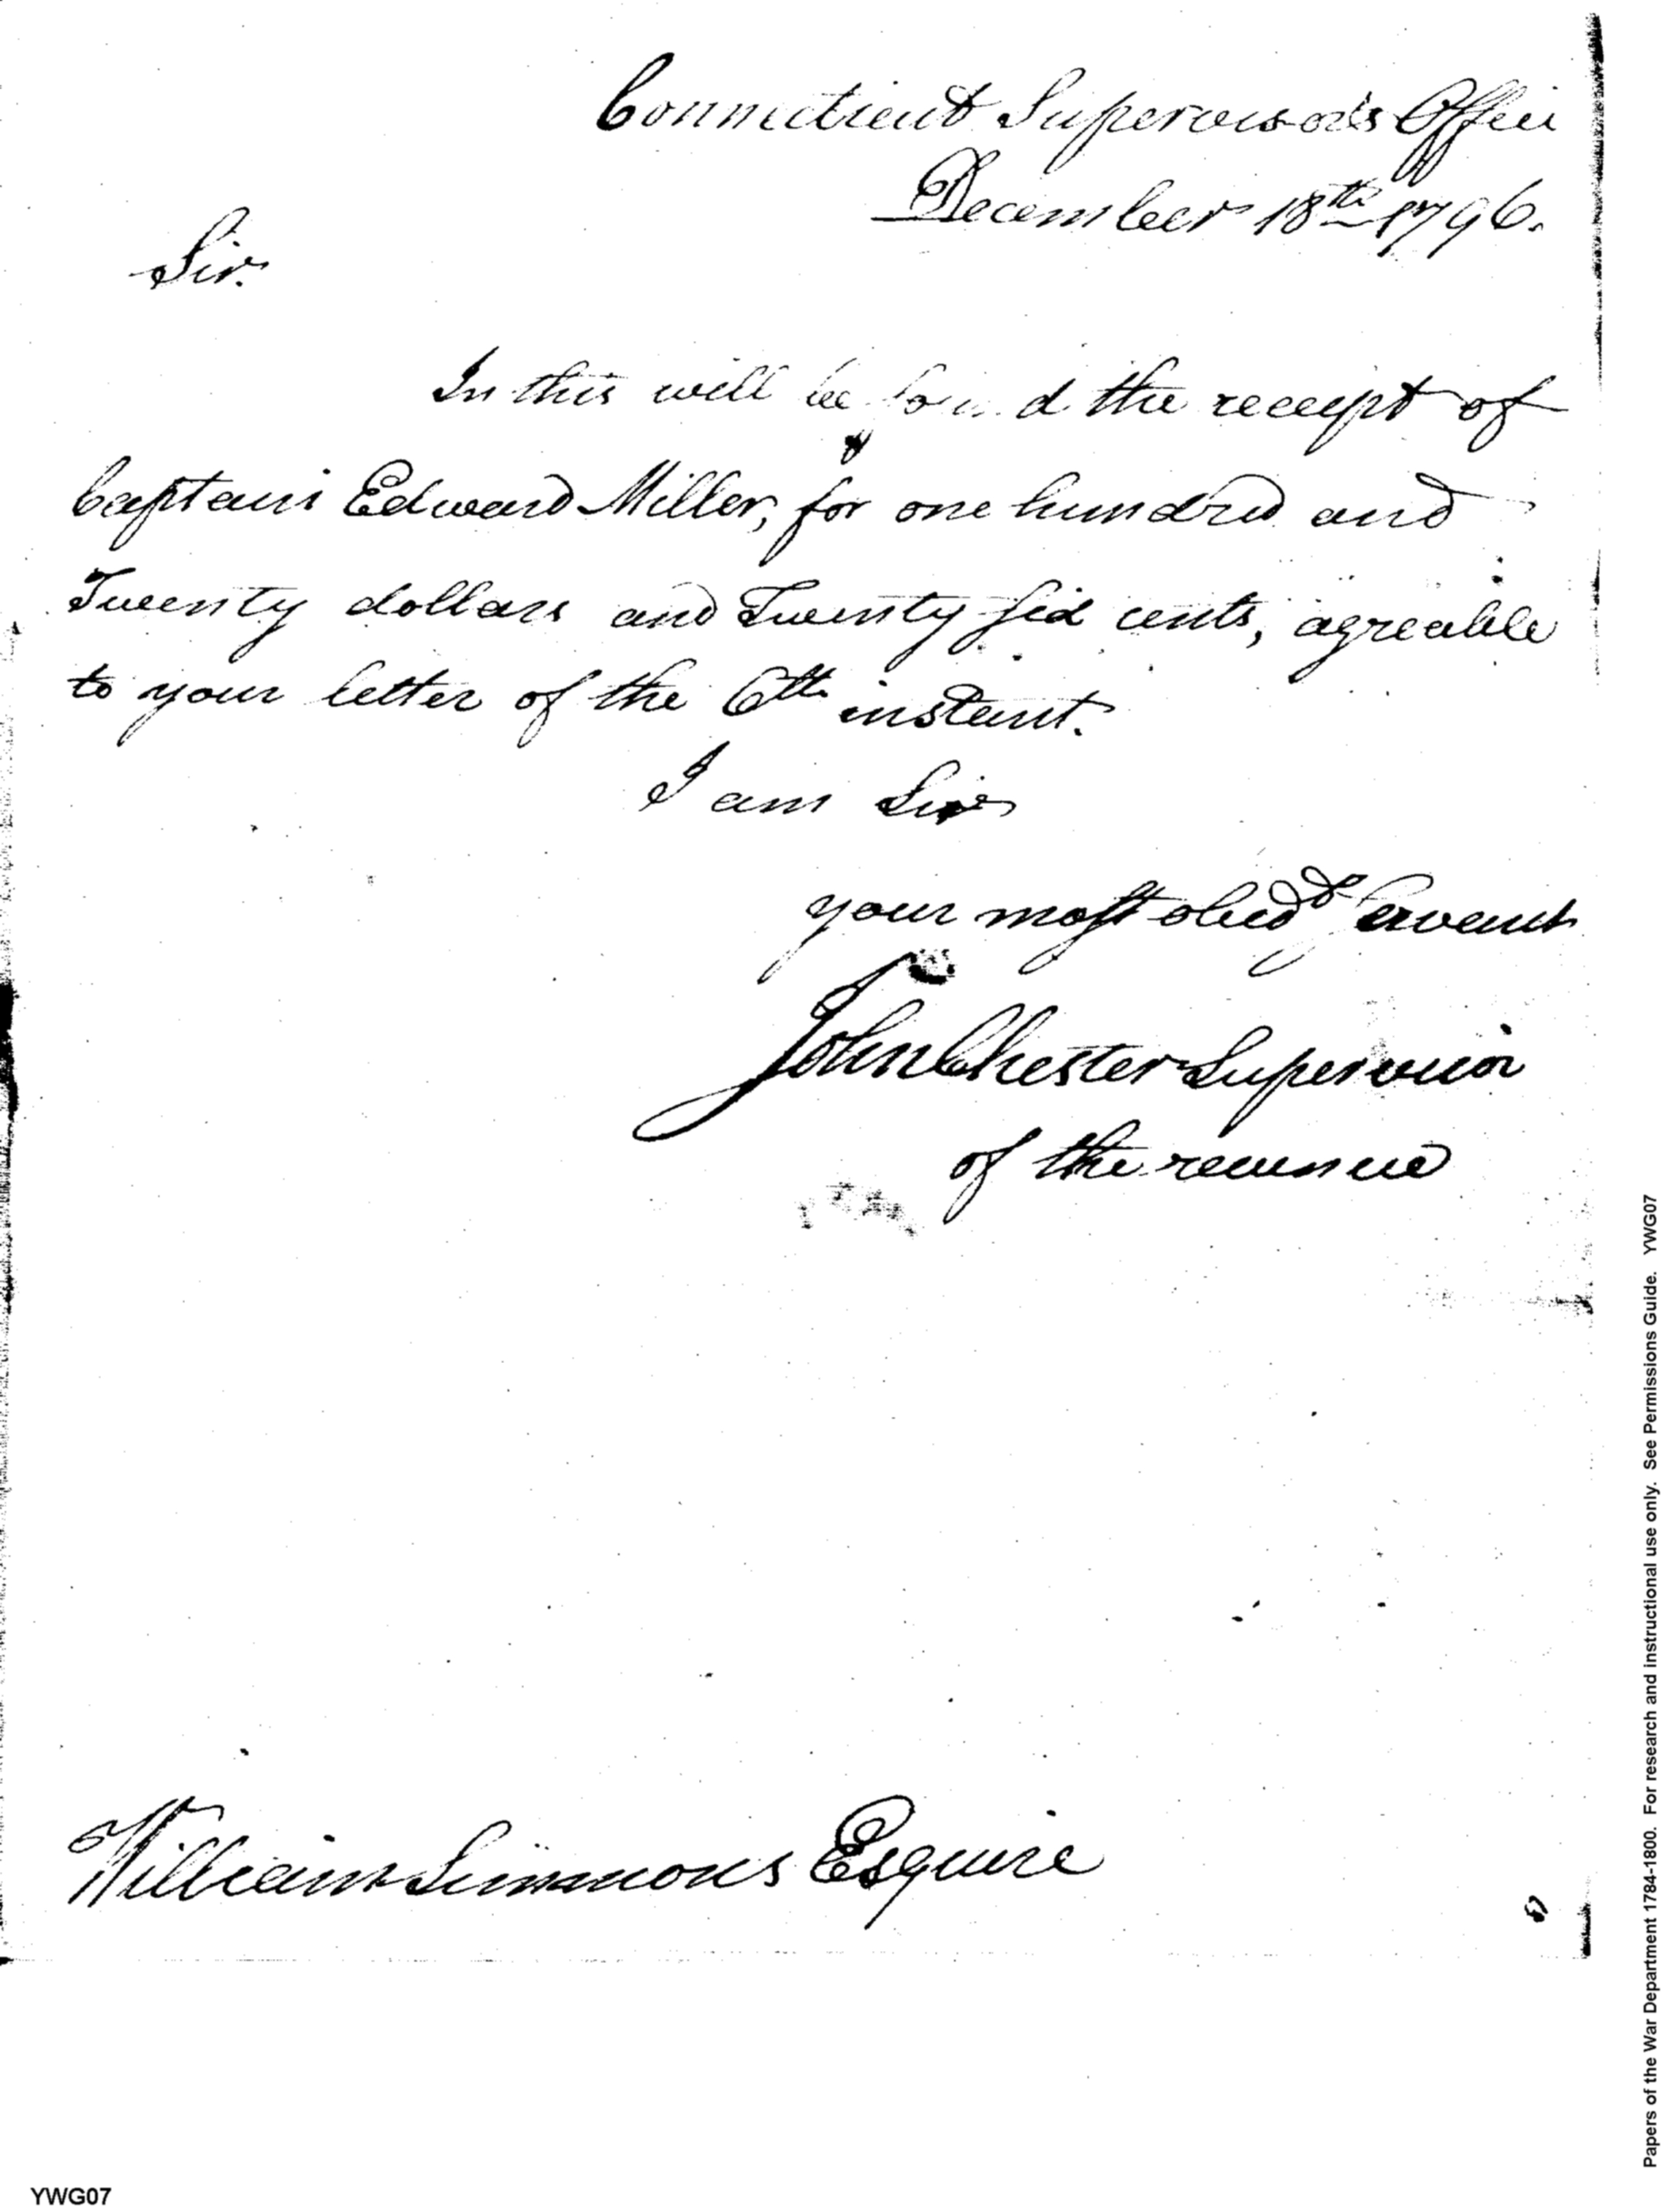 Connecticut Supervisor's Office
December 18th 1796.
Sir.
In this will be found the receipt of
Captain Edward Miller, for one hundred and
Twenty dollars and Twenty six cents, agreable
to your letter of the 6th instant.
I am Sir
your most obedt Servant
John Chester Supervisor
of the revenue
William Simmons Esquire
YWG07
Papers of the War Department 1784-1800. For research and instructional use only. See Permissions Guide. YWG07